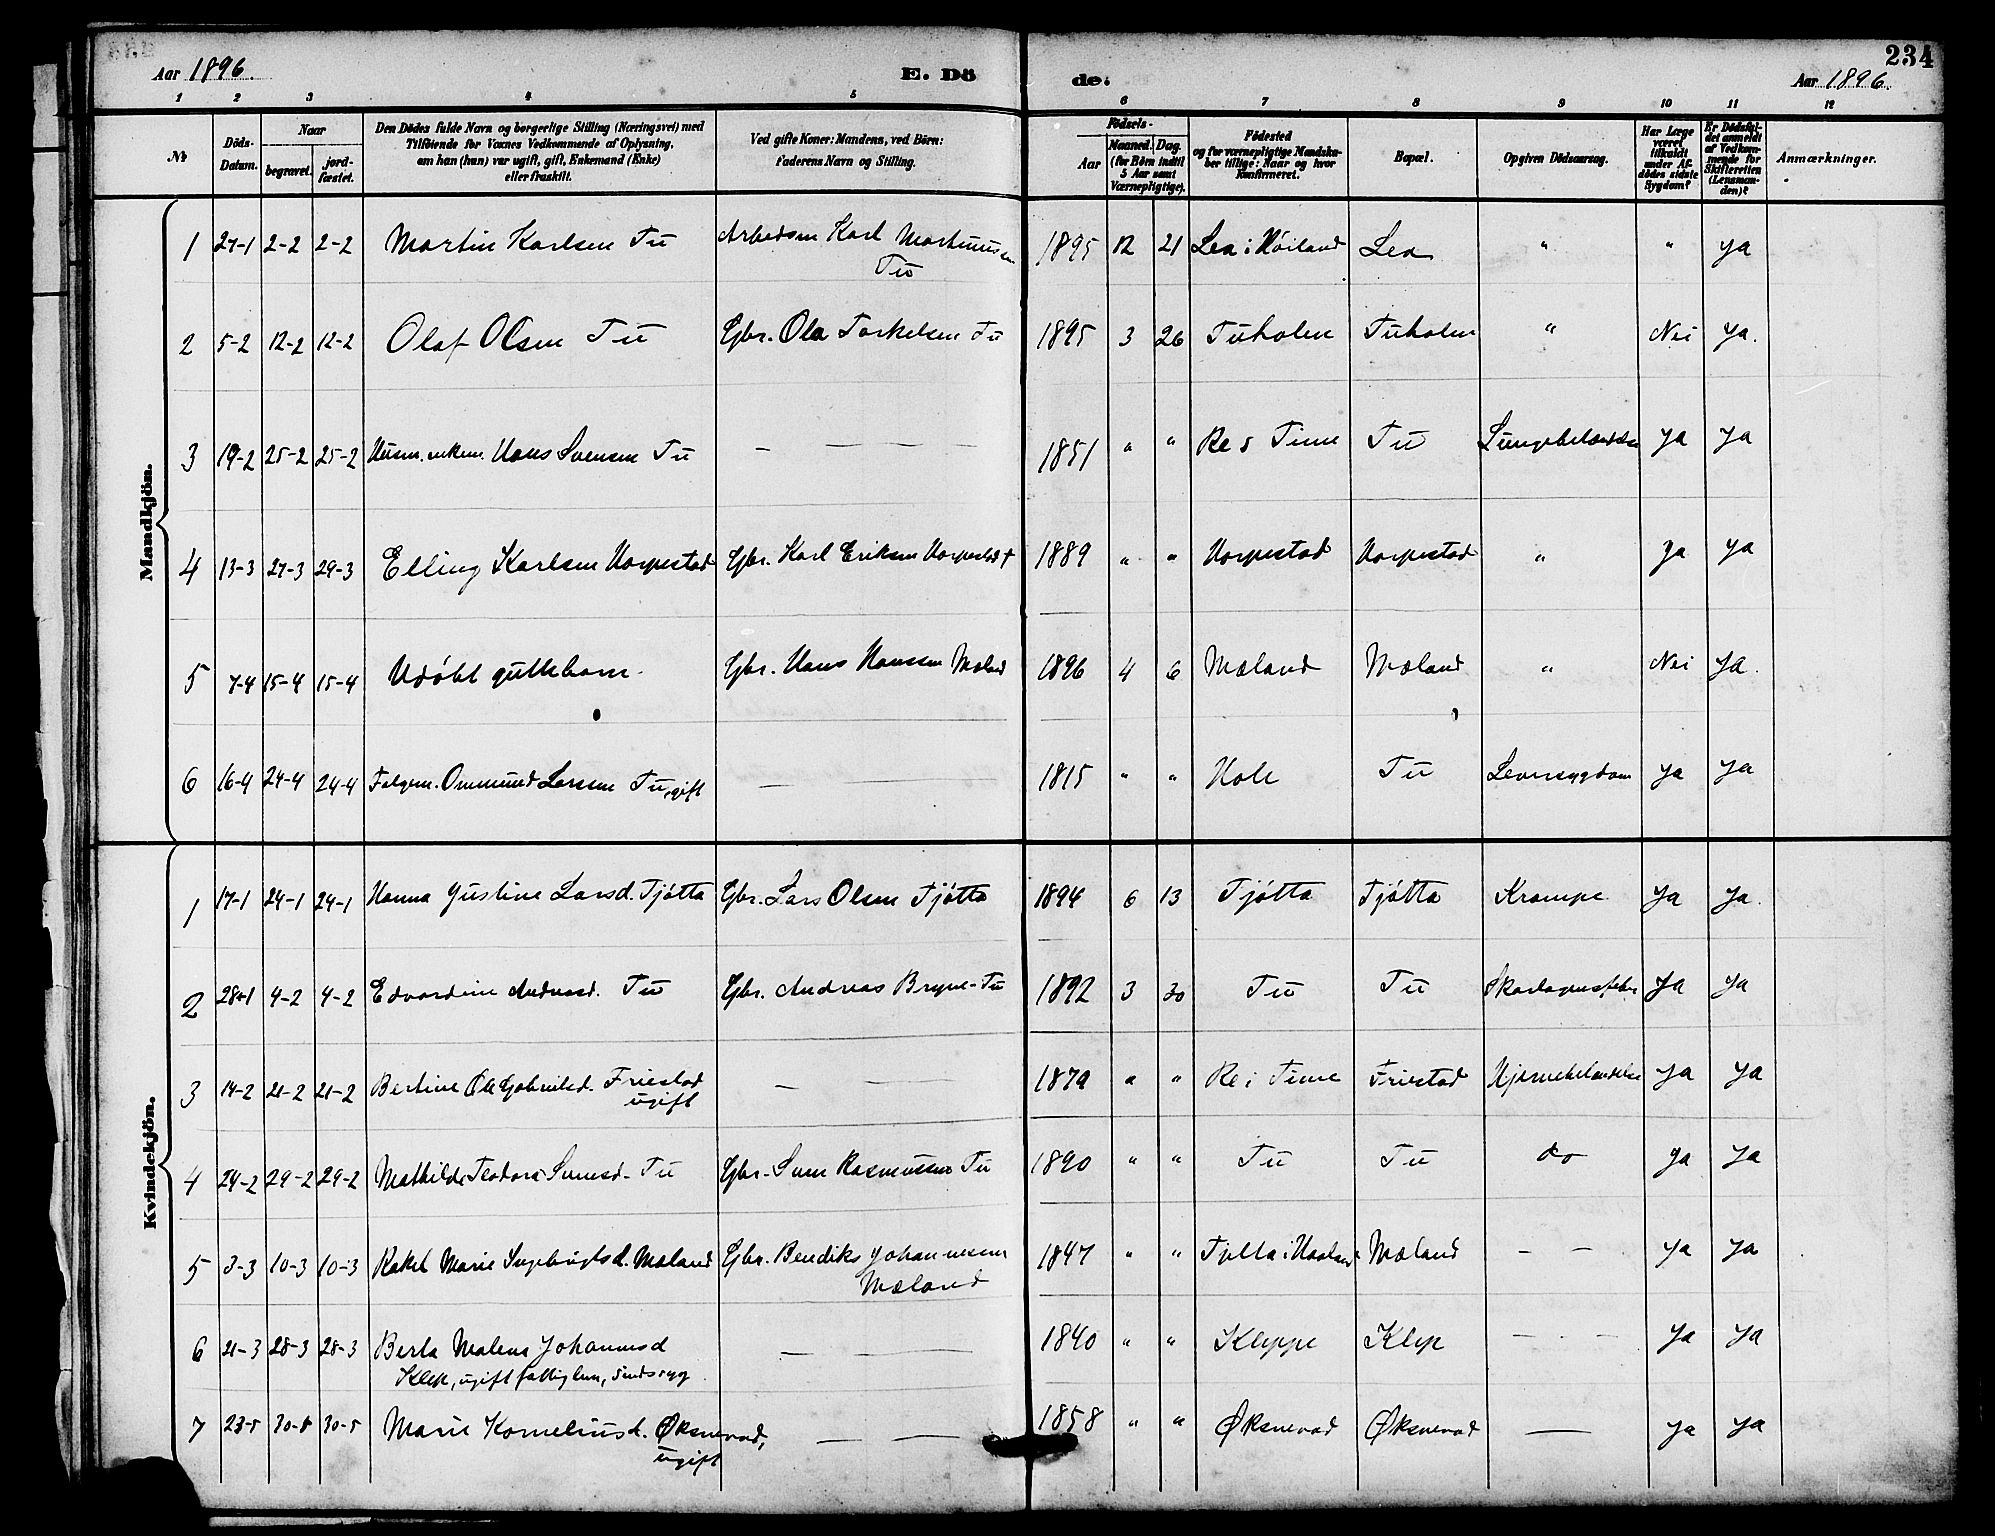 234
Aar 1896. E. Dö de. Aar 1896.
1 2 3 4 5 6 7 8 9 10 11 12
№ Döds-Datum. Naar begravet. jord-fæstet. Den Dödes fulde Navn og borgerlige Stilling (Næringsvei) med Tilföiende for Voxnes Vedkommende af Oplysning, om han (hun) var ugift, gift, Enkemand (Enke) eller fraskilt. Ved gifte Koner: Mandens, ved Börn: Faderens Navn og Stilling. Födsels- Aar Maaned. Dag. (for Börn indtil 5 Aar samt Værnepligtige). Födested og for værnepligtige Mandska-ber tillige: Naar og hvor Konfirmeret. Bopæl. Opgiven Dödsaarsag. Har Læge været tilkaldt under Af-dödes sidste Sygdom? Er Dödsfal-det anmeldt af Vedkom-mende for Skifteretten (Lensman-den)? Anmærkninger.
Mandkjön.
1 27-1 2-2 2-2 Martin Karlsen Tu Arbeidsm Karl Martinussen Tu 1895 12 21 Lea i Höiland Lea " " ja
2 5-2 12-2 12-2 Olaf Olsen Tu Gbr. Ola Torkelsen Tu 1895 3 26 Tuholen Tuholen " Nei ja.
3 19-2 25-2 25-2 Husm. enkem. Hans Svensen Tu — — — — 1851 " " Re i Time Tu Lungebetændelse ja ja
4 13-3 27-3 29-3 Elling Karlsen Horpestad Gbr. Karl Eriksen Horpestad † 1889 " " Horpestad Horpestad " ja ja
5 7-4 15-4 15-4 Udöbt guttebarn. Gbr. Hans Hanssen Mæland 1896 4 6 Mæland Mæland " Nei ja.
6 16-4 24-4 24-4 Følgem. Ommund Larsen Tu, gift — — 1815 " " Hole Tu Leversygdom ja ja
Kvindekjön.
1 17-1 24-1 24-1 Hanna Justine Larsd. Tjötta Gbr. Lars Olsen Tjötta 1894 6 13 Tjötta Tjötta Krampe ja ja.
2 28-1 4-2 4-2 Edvardine Andreasd. Tu Gbr. Andreas Bryne-Tu 1892 3 30 Tu Tu Skarlagensfeber ja ja
3 14-2 21-2 21-2 Bertine Gabrielsd. Friestad ugift — — 1879 " " Re i Time Friestad Hjernebetændelse ja ja
4 24-2 29-2 29-2 Mathilde Teodora Svensd. Tu Gbr. Sven Rasmussen Tu 1890 " " Tu Tu do ja ja
5 3-3 10-3 10-3 Rakel Marie Ingebrigtsd. Mæland Gbr. Bendiks Johannesen Mæland 1847 " " i Haaland Mæland — — ja ja
6 21-3 28-3 28-3 Berta Malene Johannesd Klep, ugift fattiglem, sindssyg — — 1840 " " Kleppe Klep — — ja ja
7 23-5 30-5 30-5 Marie Korneliusd. Øksnevad, ugift — — 1858 " " Øksnevad Øksnevad — ja ja